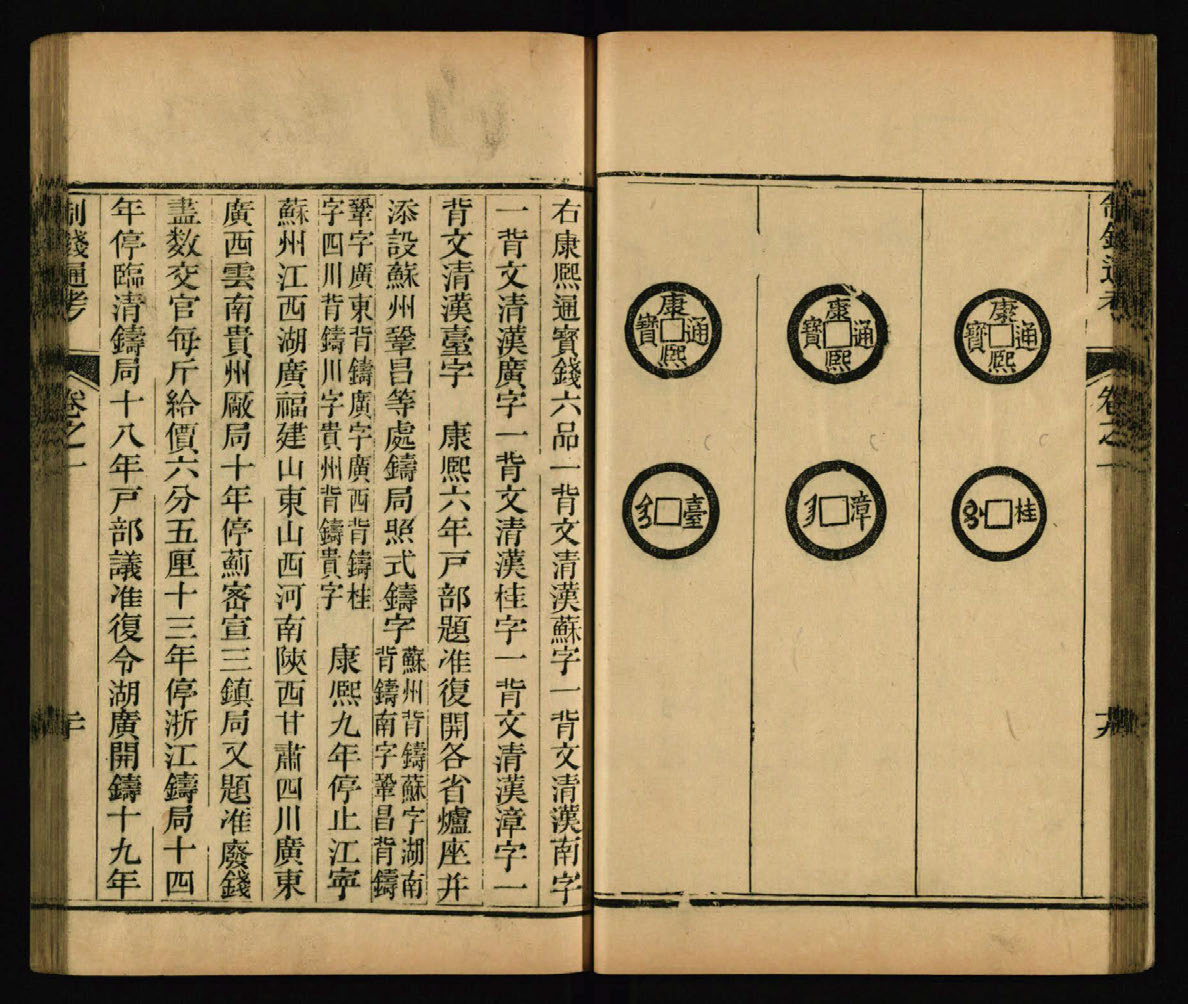 制錢通考
卷之一
康熙通寶
桂
康熙通寶
漳
康熙通寶
臺
右康熙通寶錢六品一背文清漢蘇字一背文清漢南字
一背文清漢廣字一背文清漢桂字一背文清漢漳字一
背文清漢臺字　康熙六年戸部題准復開各省爐座并
添設蘇州鞏昌等處鑄局照式鑄字
蘇州背鑄蘇字湖南
背鑄南字鞏昌背鑄
鞏字廣東背鑄廣字廣西背鑄桂
字四川背鑄川字貴州背鑄貴字
康熙九年停止江寧
蘇州江西湖廣福建山東山西河南陝西甘肅四川廣東
廣西雲南貴州厰局十年停薊密宣三鎮局又題准廢錢
盡数交官每斤給價六分五厘十三年停浙江鑄局十四
年停臨清鑄局十八年戸部議准復令湖廣開鑄十九年
制錢通考
卷之一